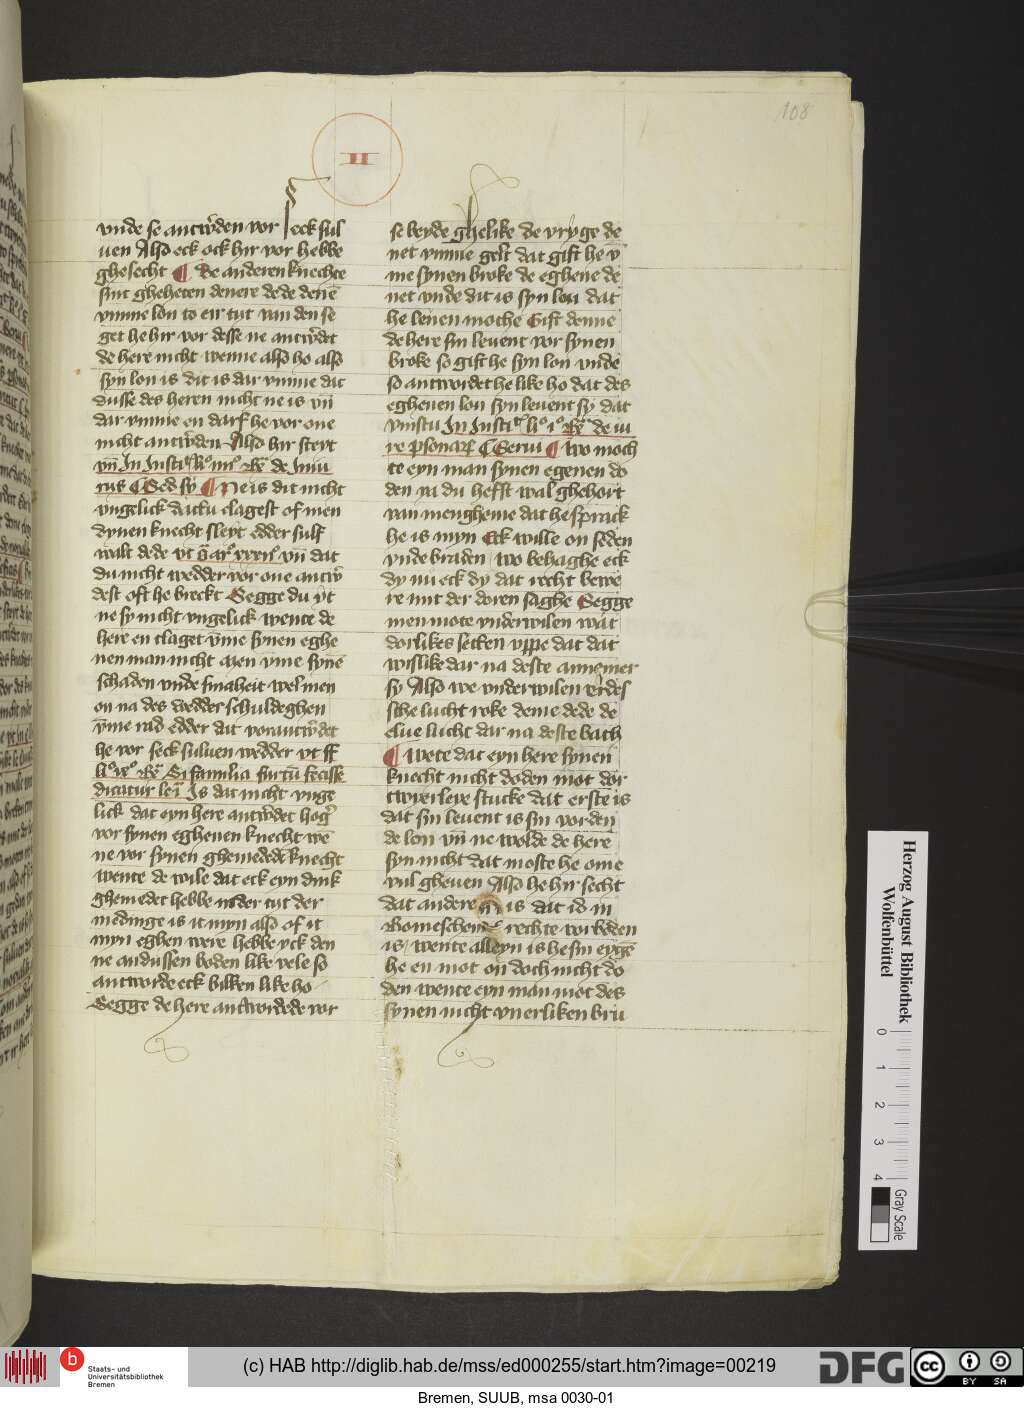 108
II
vnde se antwerden vor seck sul
uen Also eck ock hir vor hebbe
ghesecht ¶ De anderen knechte
sint gheheten denere dede denē
vmme lon to eir tyt van den se
get he hir vor desse ne antwerdet
de here nicht wenne also ho also
syn lon is dit is dar vmme dat
dusse des heren nicht ne is vn̄
dar vmme en darf he vor one
nicht antwerden Also hir steyt
vn̄ In Insti
rus Sed sy ¶ Ne is dit nicht
vngelick dattu clagest of men
dynen knecht sleyt edder sulf
walt dede vt vn̄ dat
du nicht wedder vor one antw
dest oft he breckt Segge du yt
ne sy nicht vngelick wente de
here en claget vme synen eghe
nen man nicht men vme synē
schaden vnde smaheit wel men
on na des wedder schuldeghen
vme rad edder dat vorantwerdet
he vor seck suluen wedder vt ff
Si familia furtū fecisse
dicatur Is dat nicht vnge
lick dat eyn here antwerdet hog
vor synen eghenen knecht we
ne vor synen ghemededē knecht
wente de wile dat eck eyn dink
ghemedet hebbe in der tyt der
medinge is it myn also of it
myn eghen were hebbe yck den
ne an dussen boden like vele so
antworde eck billken like ho
Segge de here antwordede vor
se beyde ghelike de vryge de
net vmme gelt dat gift he v
me synen broke de eghene de
net vnde dit is syn lon dat
he leuen moche Gift denne
de here sin leuent vor synen
broke so gift he syn lon vnde
so antwordet he like ho dat des
eghenen lon syn leuent sy dat
vinstu In Insti de iu
re Serui ¶ Wo moch
te eyn man synen egenen do
den na du hefft wal ghehort
van mengheme dat he sprack
he is myn Eck wille on seden
vnde braden wo behaghe eck
dy nu eck dy dat recht bewe
re mit der doren saghe Segge
men mote vnderwilen wat
dorlikes setten vppe dat dat
wislike dar na deste annemer
sy Also we vnderwilen erdes
sche lucht roke deme dede de
elue lucht dar na deste bath
¶ Wete dat eyn here synen
knecht nicht doden mot dor
twyerleye stucke dat erste is
dat sin leuent is sin vorden
de lon vn̄ ne wolde de here
syn nicht dat moste he ome
vul gheuen Also he hir secht
dat andere is dat id in
Romeschem rechte vorboden
is wente alleyn is he sin eygē
he en mot on doch nicht do
den wente eyn man mot des
synen nicht vnerliken bru
Herzog August Bibliothek
Wolfenbüttel
0 1 2 3 4
Gray Scale
b
Staats- und
Universitätsbibliothek
Bremen
(c) HAB http://diglib.hab.de/mss/ed000255/start.htm?image=00219
DFG
cc BY SA
Bremen, SUUB, msa 0030-01